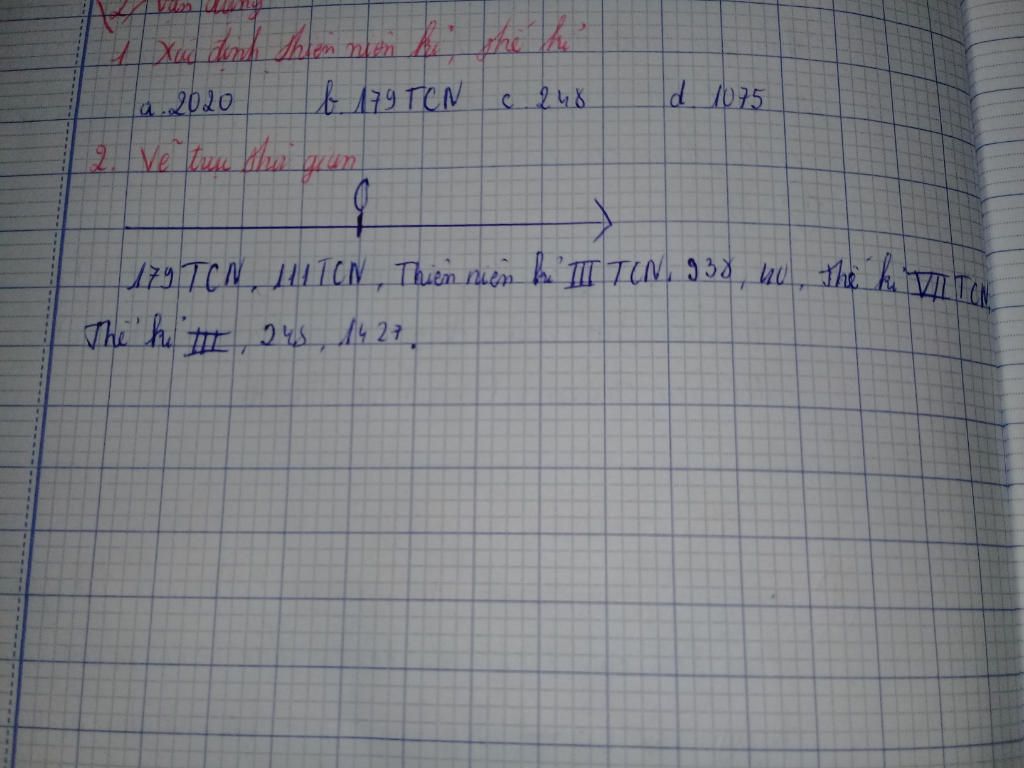 2) Vận dụng
1 Xác định thiên niên kỉ, thế kỉ
a. 2020 b. 179 TCN c 248 d 1075
2. Vẽ trục thời gian
0
179 TCN, 111 TCN, Thiên niên kỉ III TCN, 938, 40, Thế kỉ VII TCN,
Thế kỉ III, 248, 1427.